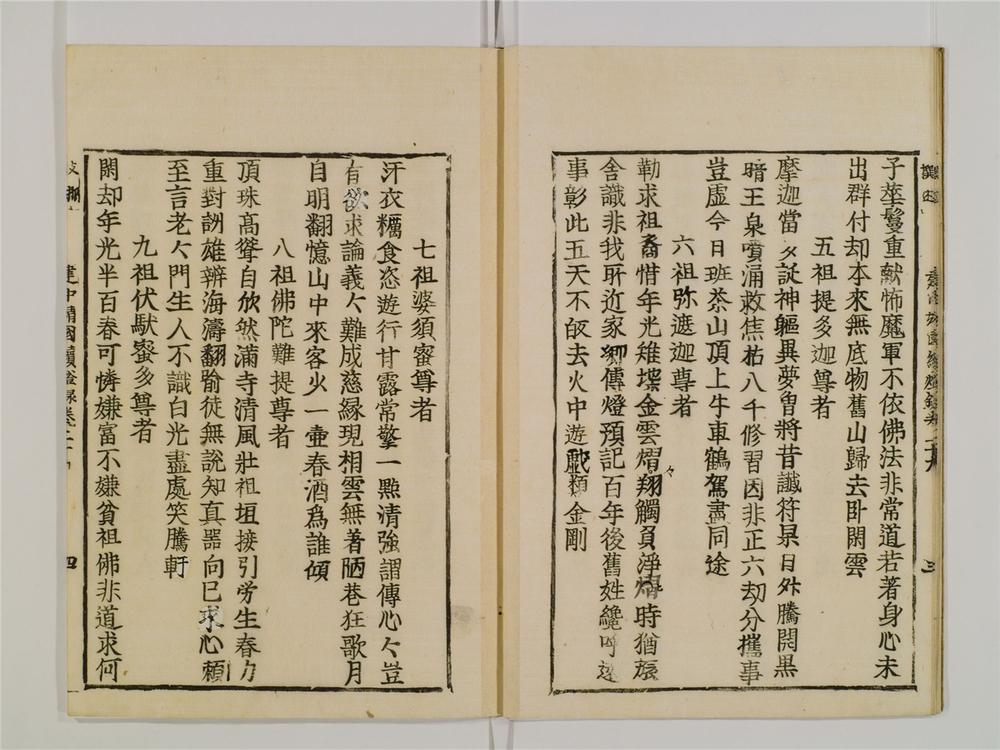 子華鬘重獻怖魔軍不依佛法非常道若著身心未
出群付却本來無底物舊山歸去卧閑雲
五祖提多迦尊者
摩迦當夕誕神軀異夢曾將昔讖符杲日外騰開黒
暗王泉噴涌救焦枯八千修習因非正六劫分攜事
豈虛今日班荼山頂上牛車鶴駕盡同途
六祖弥遮迦尊者
勒求祖裔惜年光雉堞金雲熠々翔觸負淨時猶
舍識非我所近家傳燈預記百年後舊姓纔呼逵
事彰此五天不皈去火中遊戲類金剛
三
七祖婆須蜜尊者
汗衣糲食恣遊行甘露常擎一㸃清強謂傳心〻豈
有欲求論義〻難成慈緣現相雲無著陋巷狂歌月
自明翻憶山中來客少一壷春酒爲誰傾
八祖佛陀難提尊者
頂珠髙聳自欣然滿寺清風壯祖垣接引労生春力
重對訓雄辨海濤翻喻徒無說知真噐向巳求心頼
至言老〻門生人不識白光盡處笑騰軒
九祖伏馱蜜多尊者
閑却年光半百春可憐嫌富不嫌貧祖佛非道求何
建中靖國續燈録卷二十九
四